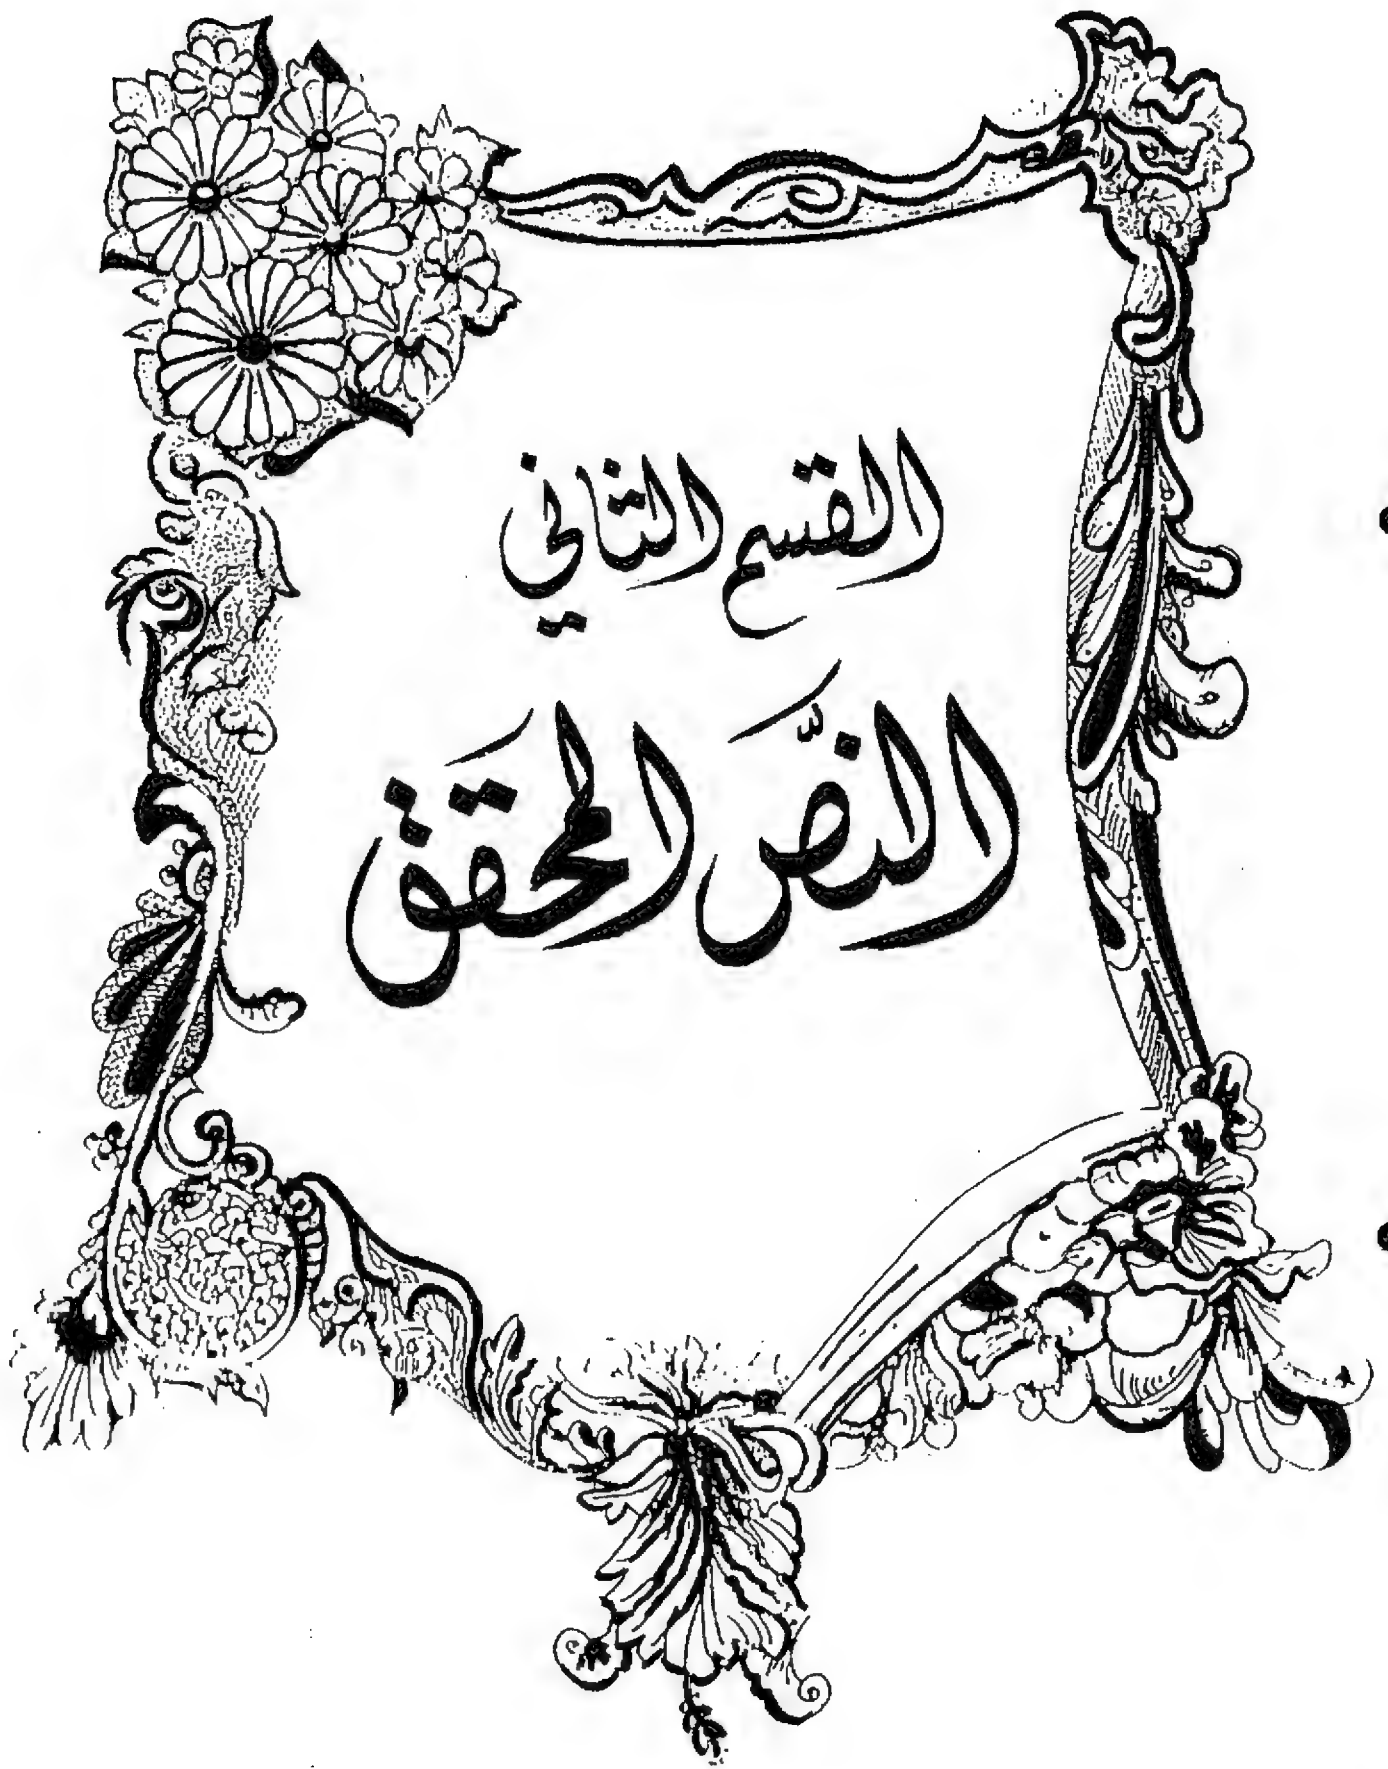 القسم الثاني
النصَّ المحَقق